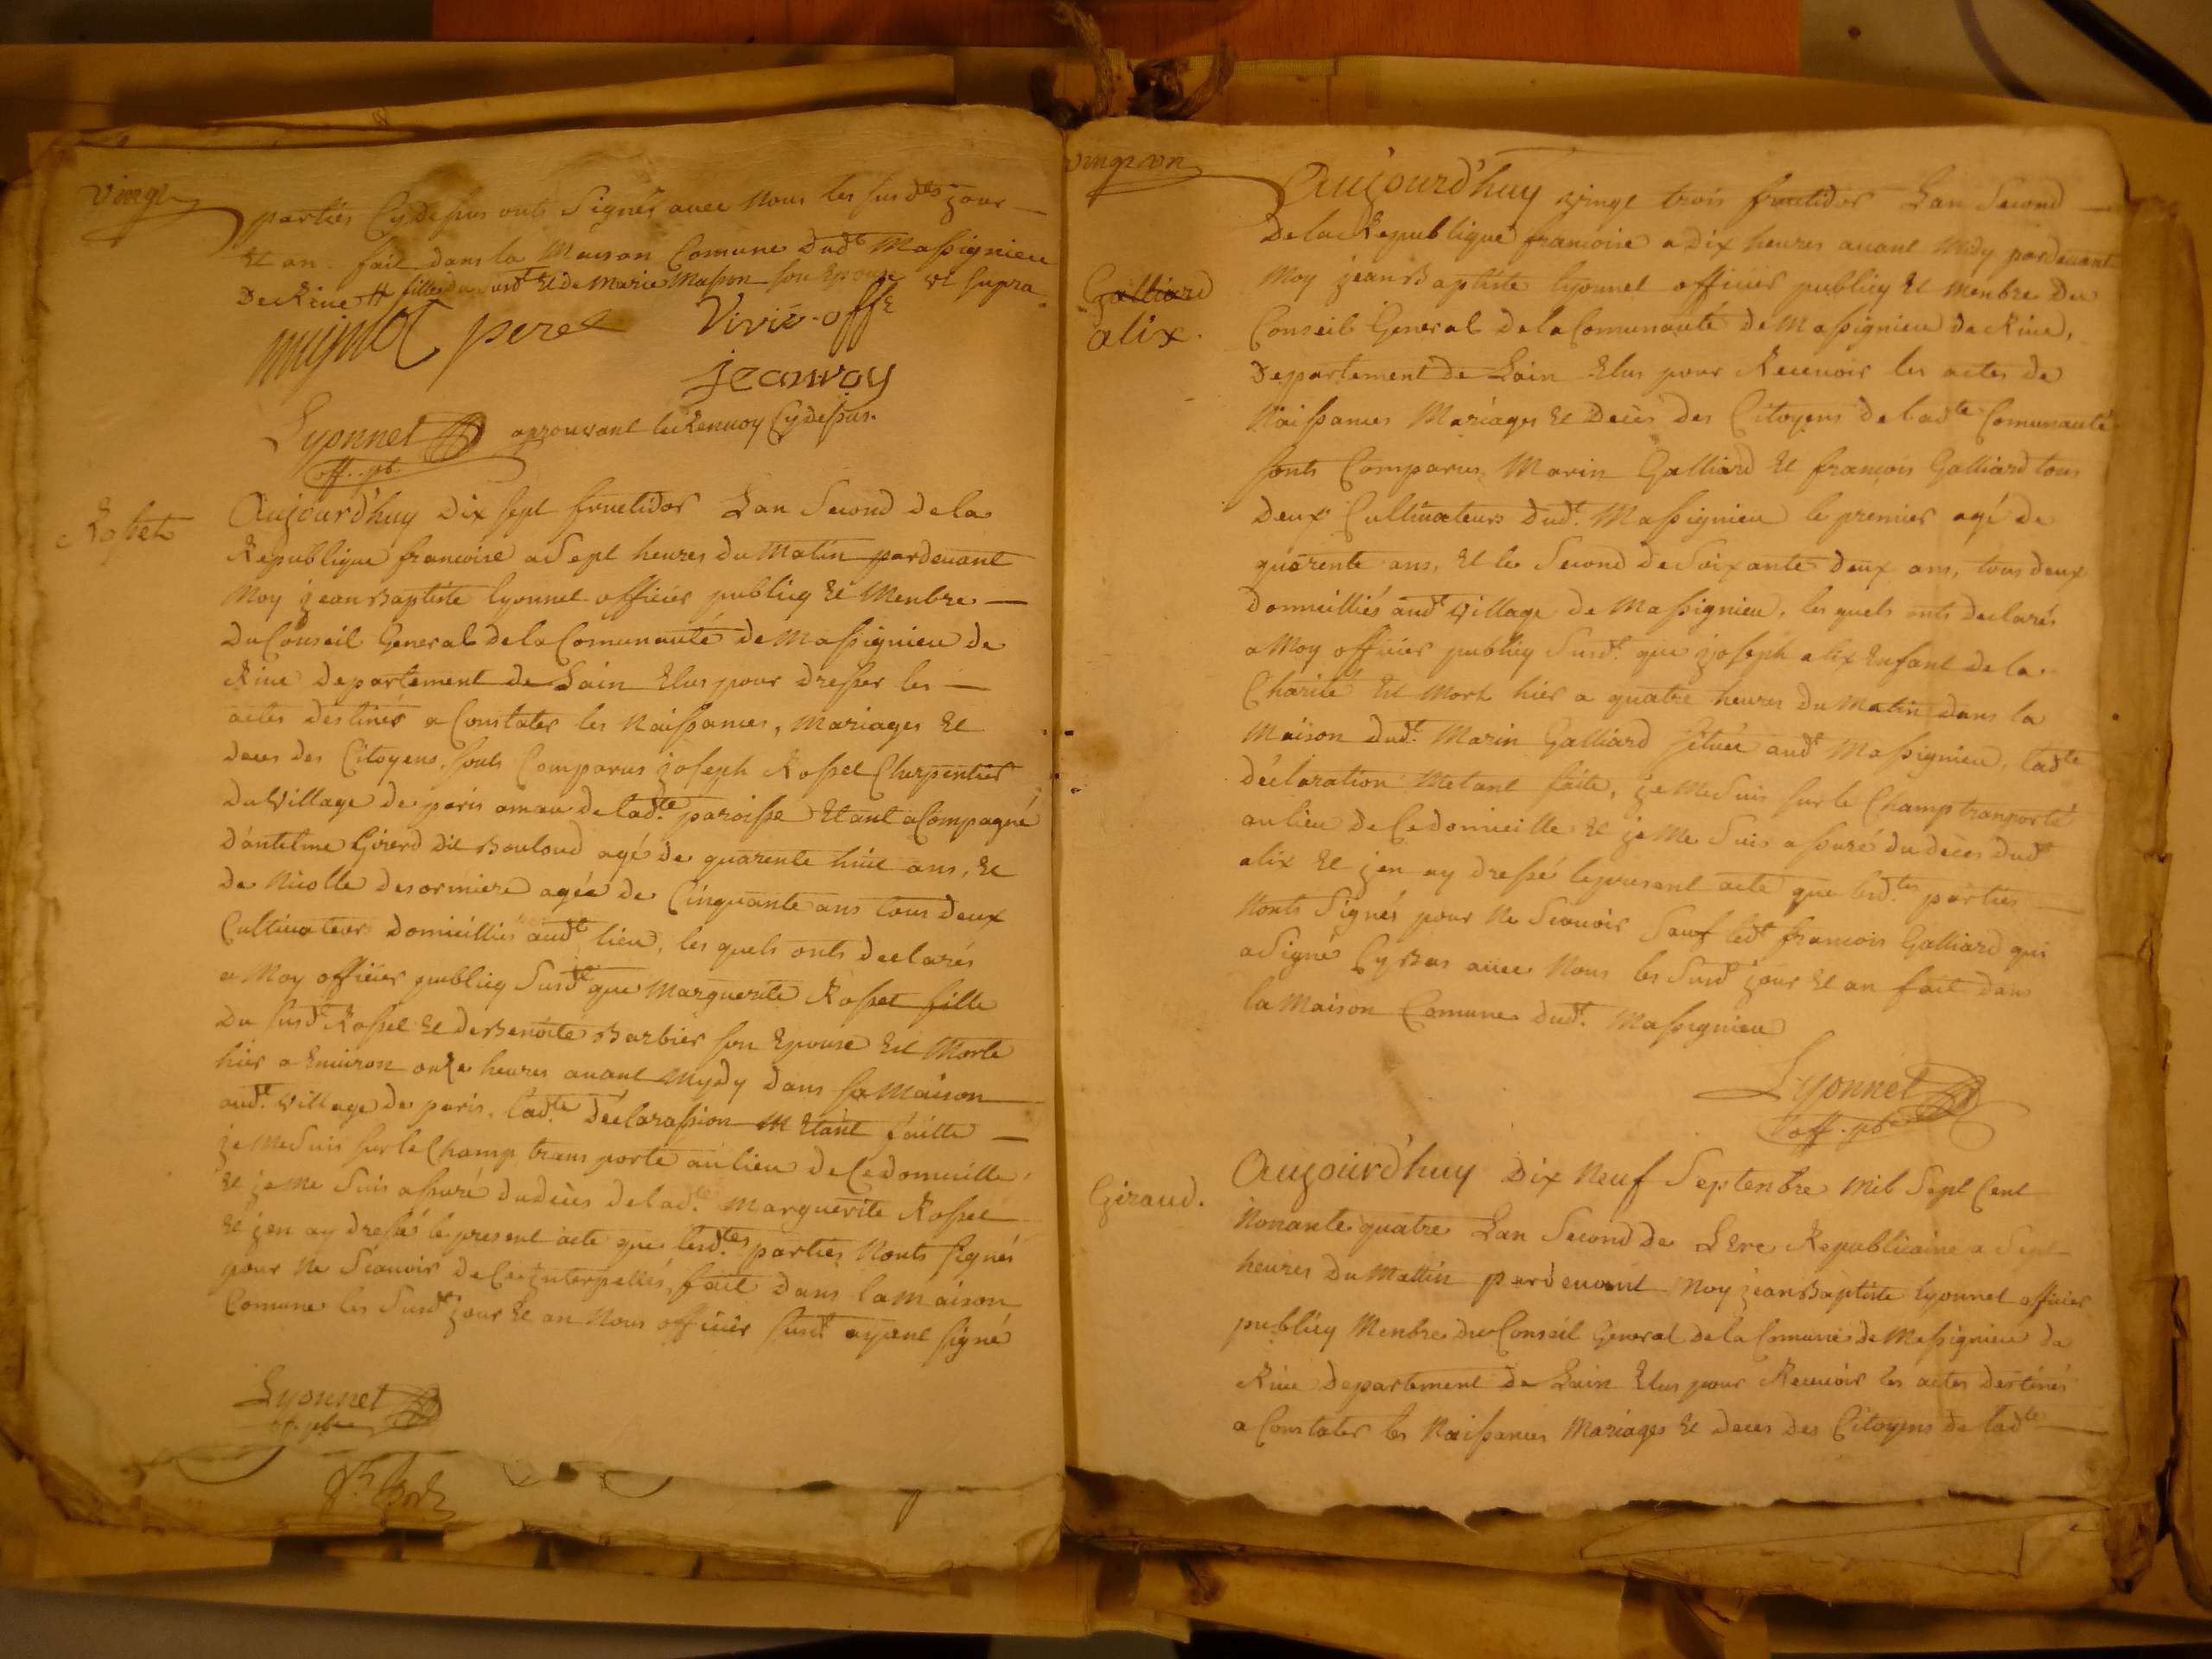 vingt
parties Cydessus onts Signés avec Nous les susdts jour
Et an. fait dans la Maison Comune dudt Massignieu
De Rive # fille du susdt Et de Marie Masson son Epouse Vt supra
pere Vivié. offr
jeanroy
Lyonnet approuvant le Renvoy Cydessus.
off. pb.
Rosset
Aujourd'huy Dix sept fructidor Lan Second de la
Republique francoise a Sept heures du Matin pardevant
Moy jean Baptiste lyonnet officier publicq Et Menbre
Du Conseil General de la Comunauté de Massignieu de
Rive Departement de Lain Elus pour dresser les
actes destinés a Constater les Naissances, Mariages Et
deces des Citoyens, sonts Comparus joseph Rosset Charpentier
Du Village de paris de ladte paroisse Etant aCompagné
D'antelme Girerd dit Bouloud agé de quarente huit ans, Et
de Nicolle desormiere agée de Cinquante ans tous deux
Cultivateurs domicilliés audt lieu, les quels onts declarés
a Moy officier publicq Susdt que Marguerite Rosset fille
Du susdt Rosset Et de Benoite Barbier son Epouse Est Morte
hier a Environ onze heures avant Mydy dans sa Maison
audt. Village de paris. Ladte déclarassion M Etant faitte
je me Suis sur le Champ transporte au lieu de Ce domicille
Et je Me Suis assuré du décès de ladte. Marguerite Rosset
Et jen ay dressé le present acte que lesdtes parties Nonts signés
pour Ne Scavoir de Ce jnterpellés, fait dans la Maison
Comune les Susdt jour Et an Nous officier susdt ayant signé
Lyonnet
off. pb
vingt un
Galliard
alix.
Aujourd'huy vingt trois fructidor Lan Second
De la Republique francoise a Dix heures avant Midy pardevant
Moy jean Baptiste lyonnet officier publicq Et Menbre Du
Conseil General de la Comunauté de Massignieu de Rive,
Departement de Lain Elus pour Recevoir les actes de
Naissances Mariages Et Décès des Citoyens de ladte Comunauté
sonts Comparus Marin Galliard Et francois Galliard tous
deux Cultivateurs dudt. Massignieu le premier agé de
quarente ans, Et le Second de Soixante deux ans, tous deux
domicilliés audt village de Massignieu, les quels onts declarés
a Moy officier publicq Susdt. que joseph alix Enfant de la
Charité Est Mort hier a quatre heures du Matin dans la
Maison dudt. Marin Galliard située audt Massignieu, ladte
déclaration Metant faite, je Me Suis sur le Champ tranporté
au lieu de Ce domicille Et je Me Suis assuré du décès dudt
alix Et jen ay dressé le present acte que lesdtes parties
Nonts Signés pour Ne Scavoir Sauf ledt francois Galliard qui
a Signé Cy Bas avec Nous les Susdt jour Et an fait dans
la Maison Comune dudt. Massignieu
Lyonnet
off. pb
Giraud.
Aujourd'huy Dix Neuf Septenbre Mil Sept Cent
Nonante quatre Lan Second de LEre Republicaine a Sept
heures Du Mattin pardevant Moy jean Baptiste lyonnet officier
publicq Menbre du Conseil General de la Comune de Massignieu de
Rive Departement de Lain Elus pour Recevoir les actes destinés
a Constater les Naissances Mariages Et deces des Citoyens de ladte